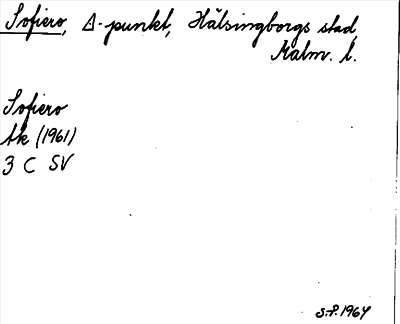 Sofiero, Δ-punkt, Hälsingborgs stad,
Malm. l.
Sofiero
tk (1961)
3 C SV
S.P. 1964